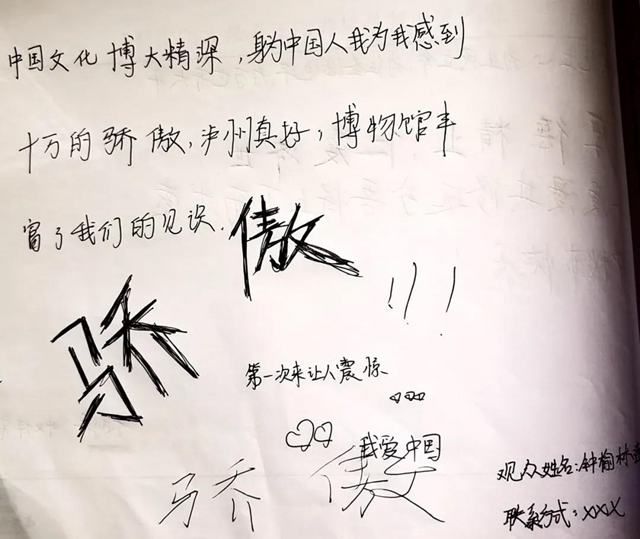 中国文化博大精深,身为中国人我为我感到
十万的骄傲,泸州真好,博物馆丰
富了我们的见识.
傲
骄
!!!
第一次来让人震惊
我爱中国
骄傲
观众姓名:钟梅林
联系方式:xxx